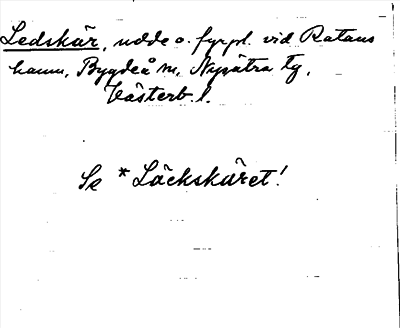 Ledskär, udde o. fyrpl. vid Ratans
hamn, Bygdeå sn, Nysätra tg,
Västerb. l.
Se *Läckskäret!